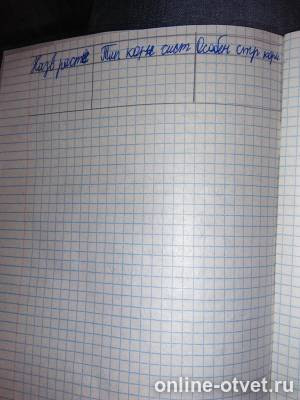 Назв раст Тип корне сист Особен стр корн
online-otvet.ru